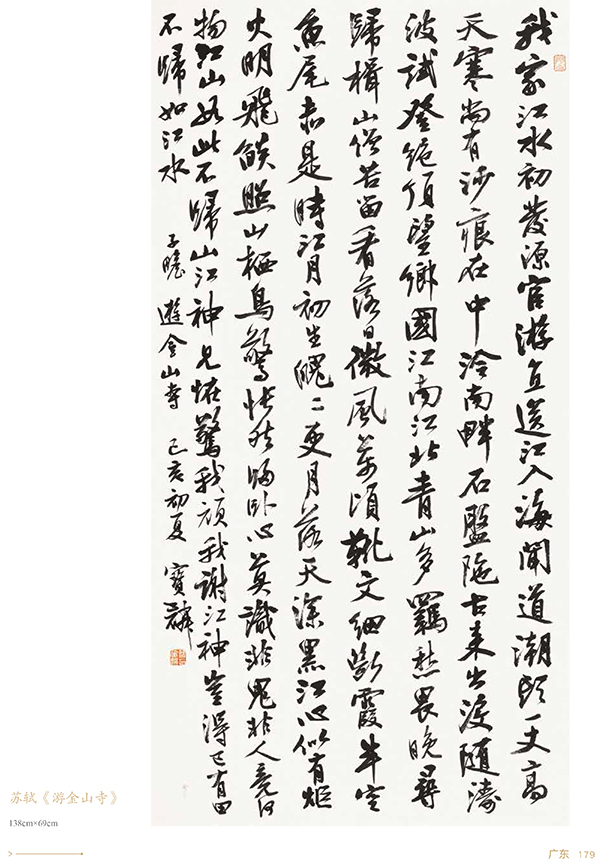 我家江水初發源宦游直送江入海聞道潮頭一丈高
天寒尚有沙痕在中泠南畔石盤陀古來出沒隨濤
波試登絕頂望鄉國江南江北青山多羈愁畏晚尋
歸楫山僧苦留看落日微風萬頃靴文細斷霞半空
魚尾赤是時江月初生魄二更月落天深黑江心似有炬
火明飛燄照山栖鳥驚悵然歸臥心莫識非鬼非人竟何
物江山如此不歸山江神見怪驚我頑我謝江神豈得已有田
不歸如江水 子瞻遊金山寺 己亥初夏 寶麟
苏轼《游金山寺》
138cm×69cm
广东 179